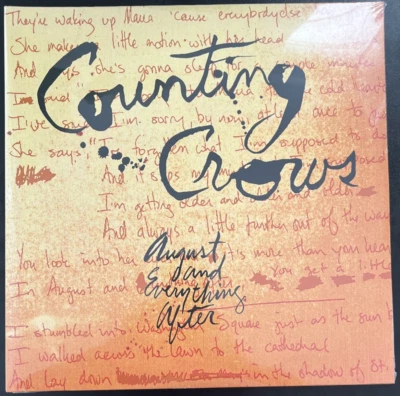 They're waking up Maria 'cause everybody else
She makes a little motion with her head
And says she's gonna sleep for a couple minutes
I'm the cold
I've said I'm sorry, by now, at least once to
She says, "I've forgotten what I'm supposed to do
And it slips my
Counting
Crows
I'm getting older and older and older
And always a little further out of the way
You look into her it is more than your heart
In August and You get a little
August
and
Everything
After
I stumbled into Washington Square just as the sun
I walked across the lawn to the cathedral
And lay down in the shadow of St.